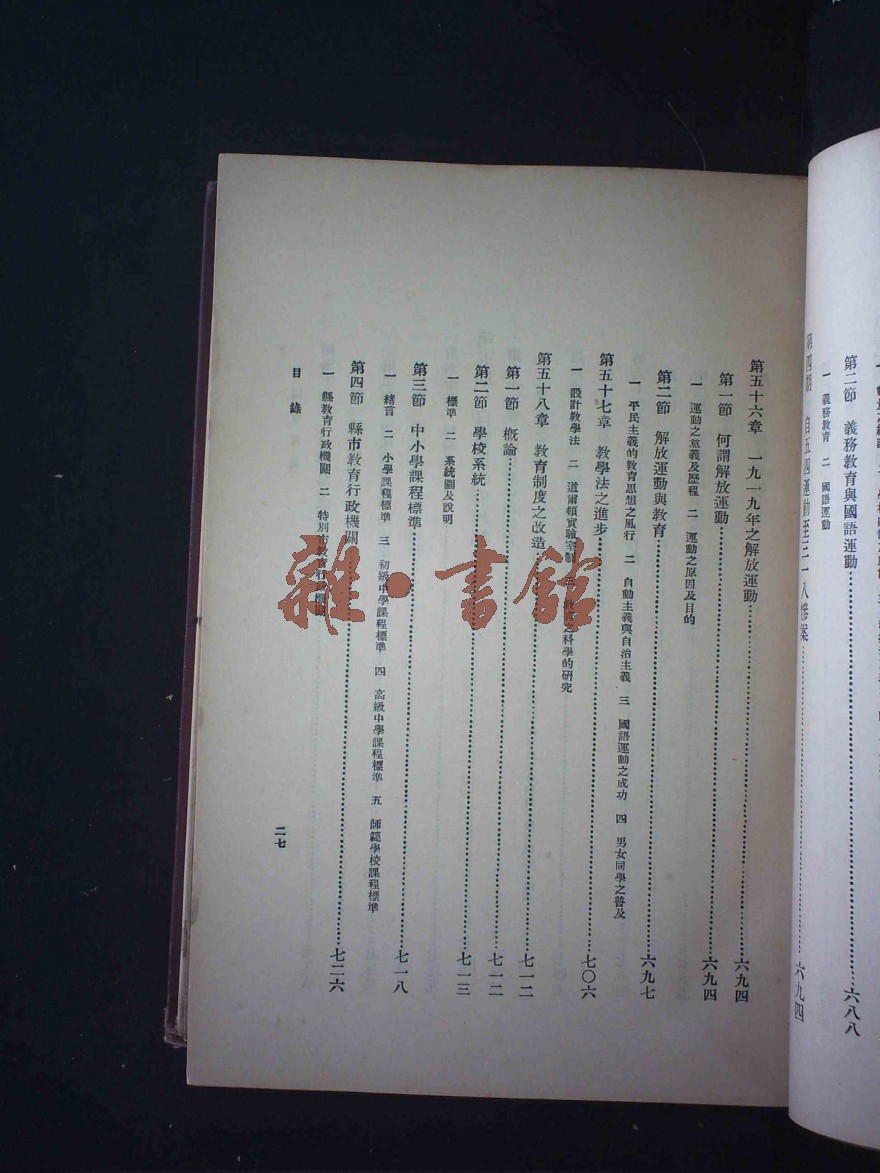 第二節　義務教育與國語運動……六八八
一　義務教育　二　國語運動
第四期　自五四運動至三一八慘案……六九四
第五十六章　一九一九年之解放運動……六九四
第一節　何謂解放運動……六九四
一　運動之意義及歷程　二　運動之原因及目的
第二節　解放運動與教育……六九七
一　平民主義的教育思想之風行　二　自動主義與自治主義　三　國語運動之成功　四　男女同學之普及
第五十七章　教學法之進步……七〇六
一　設計教學法　二　道爾頓實驗室制　三　教育之科學的研究
第五十八章　教育制度之改造……七一二
第一節　概論……七一二
第二節　學校系統……七一三
一　標準　二　系統圖及說明
第三節　中小學課程標準……七一八
一　緒言　二　小學課程標準　三　初級中學課程標準　四　高級中學課程標準　五　師範學校課程標準
第四節　縣市教育行政機關……七二六
一　縣教育行政機關　二　特別市教育行政機關
目錄
二七
雜·書館